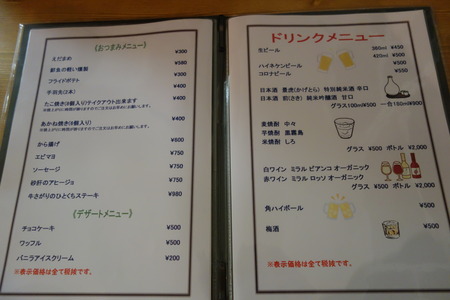 《おつまみメニュー》
えだまめ ¥300
鮮魚の軽い燻製 ¥580
フライドポテト ¥350
手羽先(2本) ¥400
たこ焼き(8個入り)テイクアウト出来ます ¥400
あかね焼き(8個入り) ¥400
から揚げ ¥600
エビマヨ ¥750
ソーセージ ¥750
砂肝のアヒージョ ¥750
牛さがりのひとくちステーキ ¥980
《デザートメニュー》
チョコケーキ ¥500
ワッフル ¥500
バニラアイスクリーム ¥200
※表示価格は全て税抜です。
ドリンクメニュー
生ビール 380ml ¥450
420ml ¥500
ハイネケンビール ¥500
コロナビール ¥550
日本酒 景虎(かげとら) 特別純米酒 辛口
日本酒 (さき) 純米吟醸酒 甘口
グラス100ml¥500 一合180ml¥900
麦焼酎 中々
芋焼酎 黒霧島
米焼酎 しろ
グラス ¥500 ボトル ¥2,000
白ワイン ミラル ビアンコ オーガニック
赤ワイン ミラル ロッソ オーガニック
グラス ¥500 ボトル ¥2,000
角ハイボール ¥500
梅酒 ¥500
※表示価格は全て税抜です。